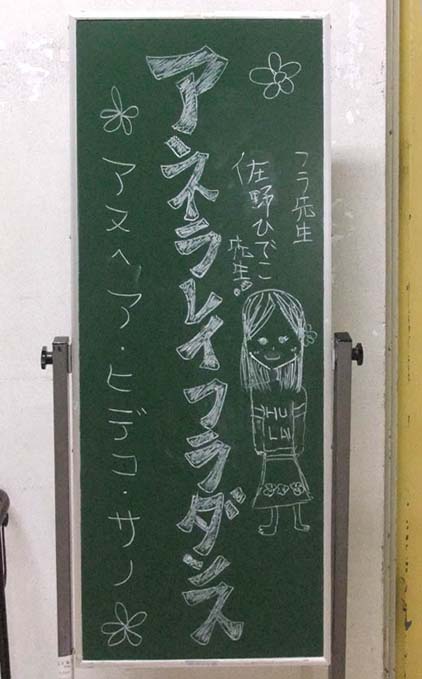 フラ先生
佐野ひでこ
先生!
HU
LA
アネラレイ フラダンス
アヌヘア・ヒデコ・サノ